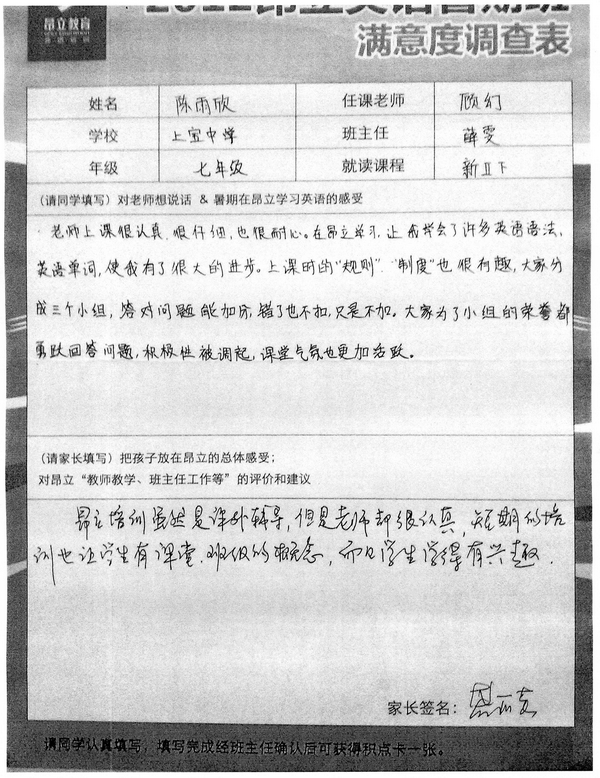 昂立教育
昂立英语暑期班
满意度调查表
姓名 陈雨欣 任课老师 顾幻
学校 上宝中学 班主任 薛雯
年级 七年级 就读课程 新Ⅱ下
(请同学填写)对老师想说话 & 暑期在昂立学习英语的感受
老师上课很认真,很仔细,也很耐心。在昂立学习,让我学会了许多英语语法,
英语单词,使我有了很大的进步。上课时的“规则”.“制度”也很有趣,大家分
成三个小组,答对问题能加分,错了也不扣,只是不加。大家为了小组的荣誉都
勇跃回答问题,积极性被调起,课堂气氛也更加活跃。
(请家长填写)把孩子放在昂立的总体感受;
对昂立“教师教学、班主任工作等”的评价和建议
昂立培训虽然是课外辅导,但是老师却很认真,短期的培
训也让学生有课堂.班级的概念,而且学生学得有兴趣.
家长签名:
请同学认真填写,填写完成经班主任确认后可获得积点卡一张。